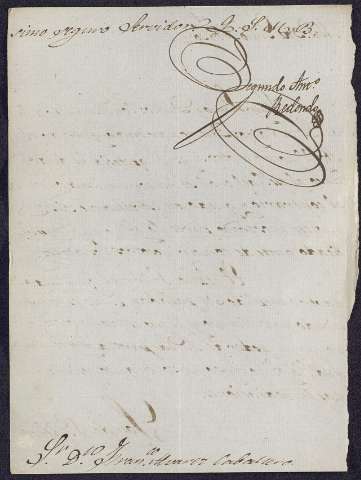 simo seguro Servidor Q. S. M. B.
Segundo Ant.º
Redondo
S.r D.n Fran.co Alvarez Caballero.